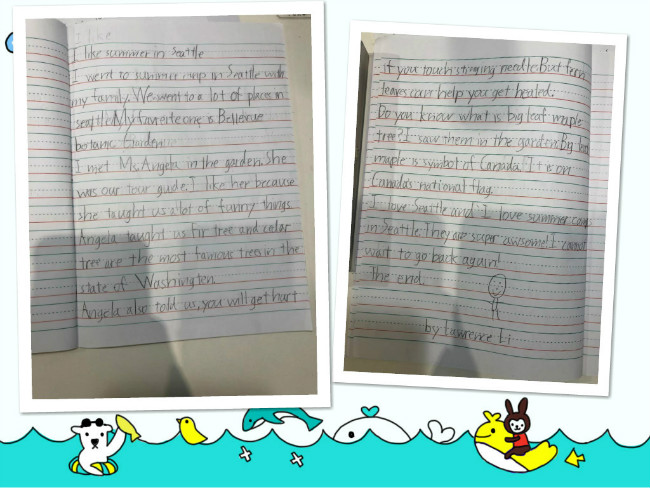 I like
I like summer in Seattle
I went to summer camp in Seattle with
my family. We went to a lot of places in
seattle. My favreite one is Bellevue
botanic Garden.
I met Ms. Angela in the garden. She
was our tour guide. I like her because
she taught us a lot of funny things.
Angela taught us fir tree and cedar
tree are the most famous trees in the
state of Washington.
Angela also told us, you will get hurt
if you touch stinging needle. But fern
leaves can help you get healed.
Do you know what is big leaf maple
tree? I saw them in the garden. Big leaf
maple is symbol of Canada. It is on
Canada's national flag.
I love Seattle and I love summer camp
in Seattle. They are super awsome! I cannot
wait to go back again!
The end.
by Lawrence Li